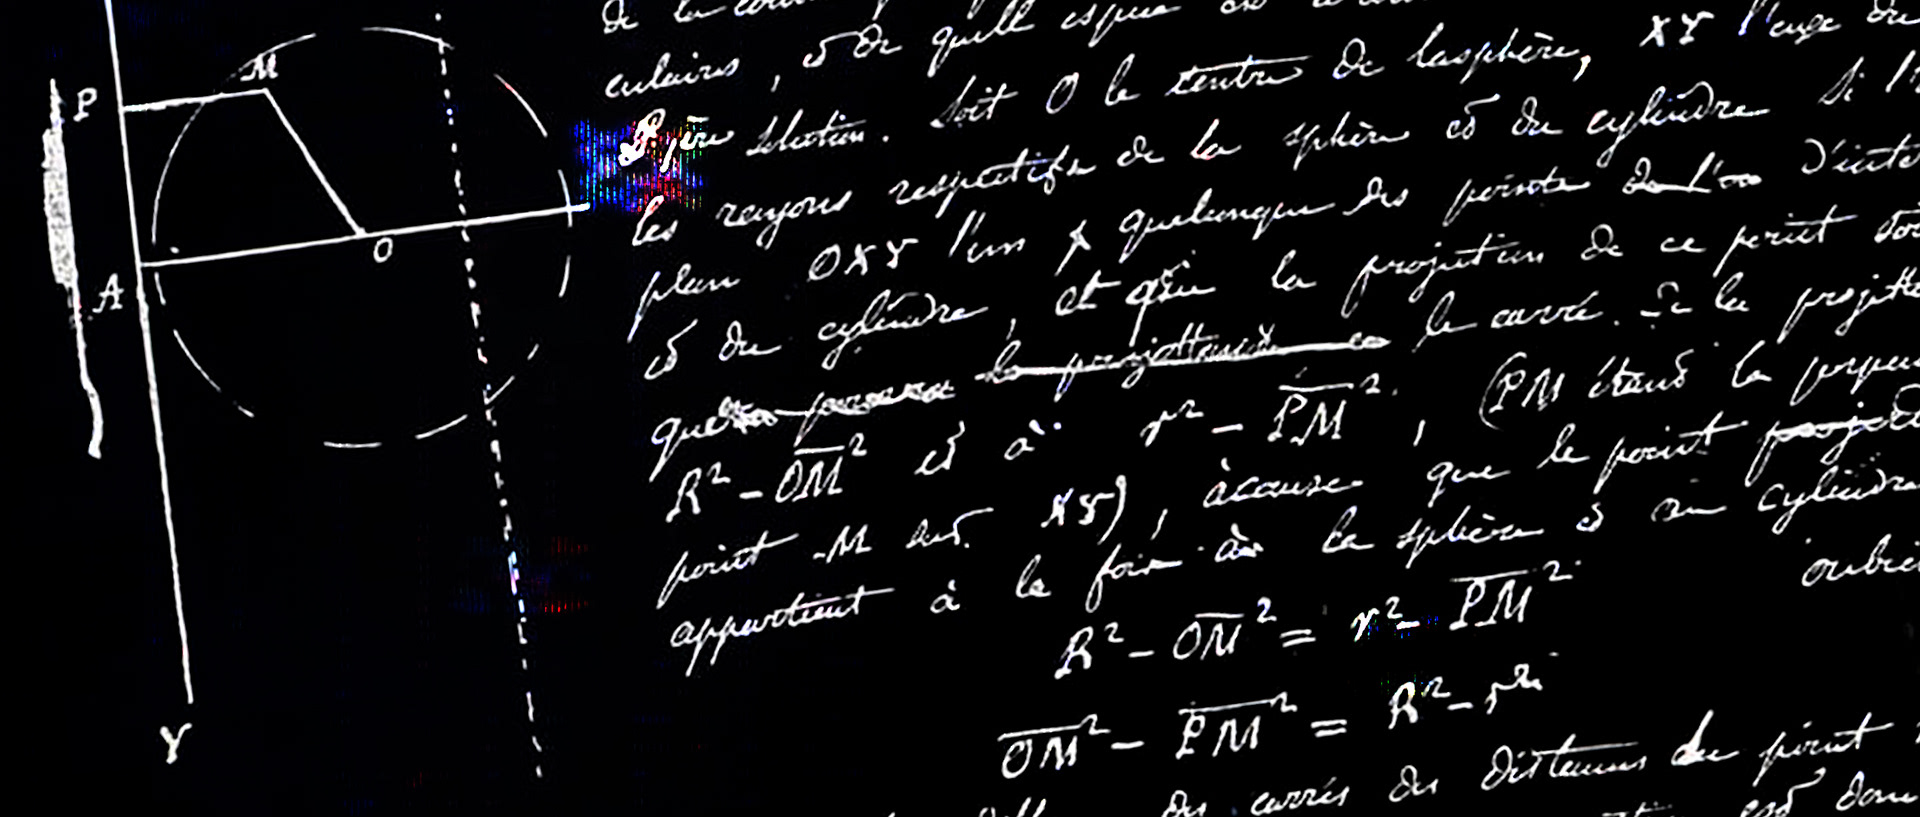 de la
culaires, et de quelle espèce est
1ère solution. Soit O le centre de la sphère, XY l'axe du
les rayons respectifs de la sphère et du cylindre Si l'
plan OXY l'un quelconque des points d'inte
et du cylindre, et que la projection de ce point soi
que le carré. De la projetta
R² - OM² et à r² - PM², (PM étant la perpen
point M sur XY), à cause que le point projeté
appartient à la fois à la sphère et au cylindre
R² - OM² = r² - PM² oubie
OM² - PM² = R² - r²
des carrés des distances du point
est donc
P
M
O
A
Y